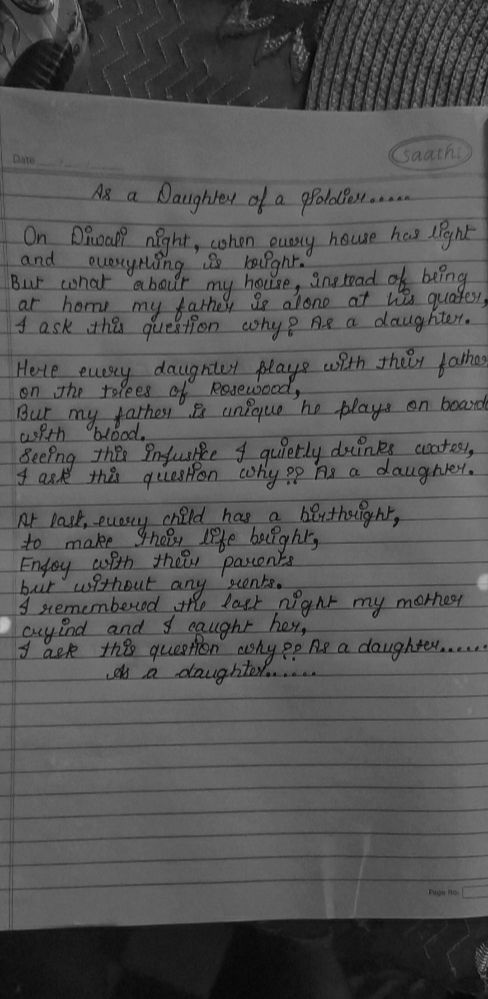 Date
Saathi
As a Daughter of a Soldier.....
On Diwali night, when every house has light
and everything is bright.
But what about my house, instead of being
at home my father is alone at his quater,
I ask this question why? As a daughter.
Here every daughter plays with their father
on the trees of Rosewood,
But my father is unique he plays on board
with blood.
Seeing this injustice I quietly drinks water,
I ask this question why?? As a daughter.
At last, every child has a birthright,
to make their life bright,
Enjoy with their parents
but without any rents.
I remembered the last night my mother
cryind and I caught her,
I ask this question why?? As a daughter......
As a daughter......
Page No.